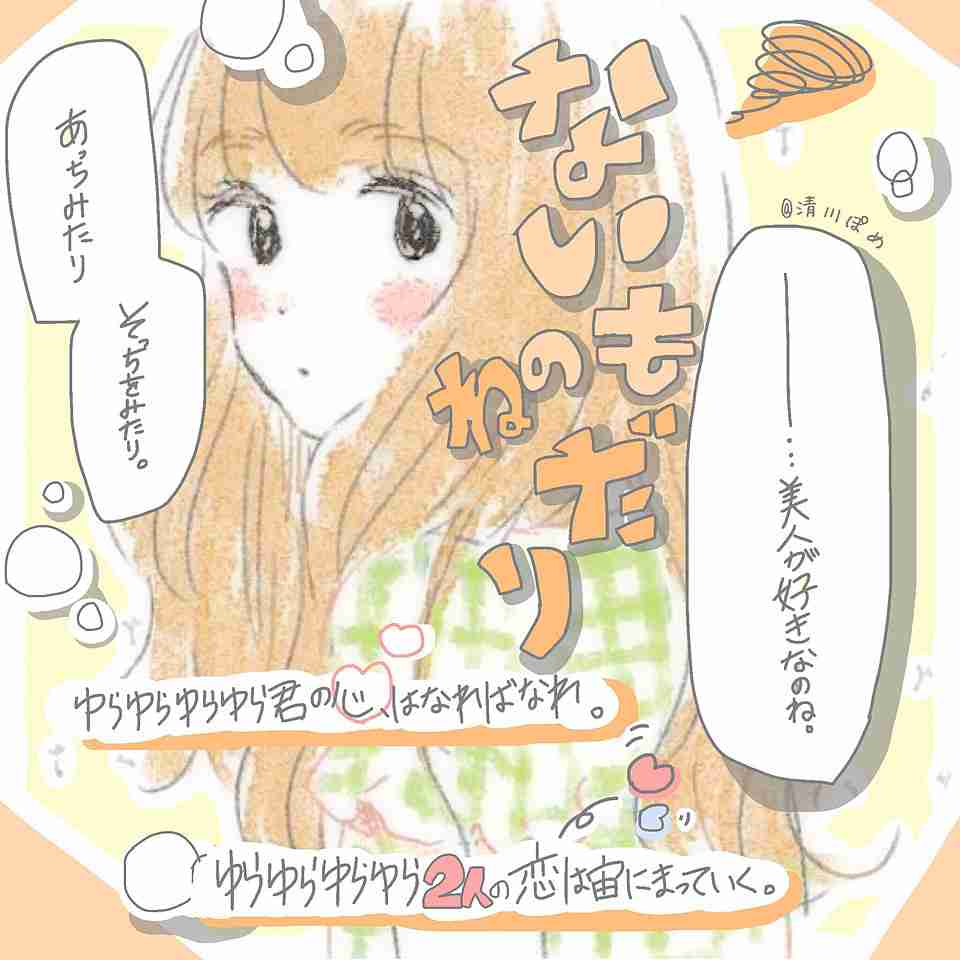 ないものねだり
@清川ぽめ
―…美人が好きなのね。
あっちみたり
そっちをみたり。
ゆらゆらゆらゆら君の心、はなればなれ。
ゆらゆらゆらゆら2人の恋は宙にまっていく。